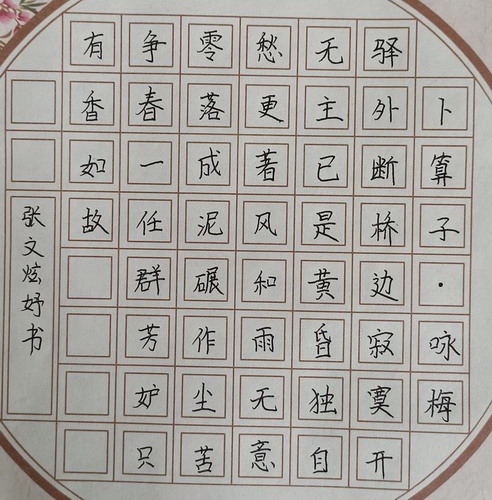 卜算子·咏梅
驿外断桥边寂寞开
无主已是黄昏独自
愁更著风和雨无意
零落成泥碾作尘苦
争春一任群芳妒只
有香如故
张文炫妤书